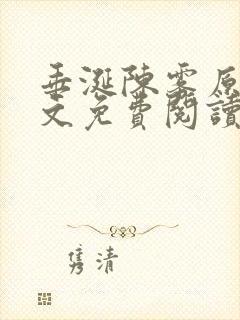 垂涎陳霧原
文免費閱讀
雋清